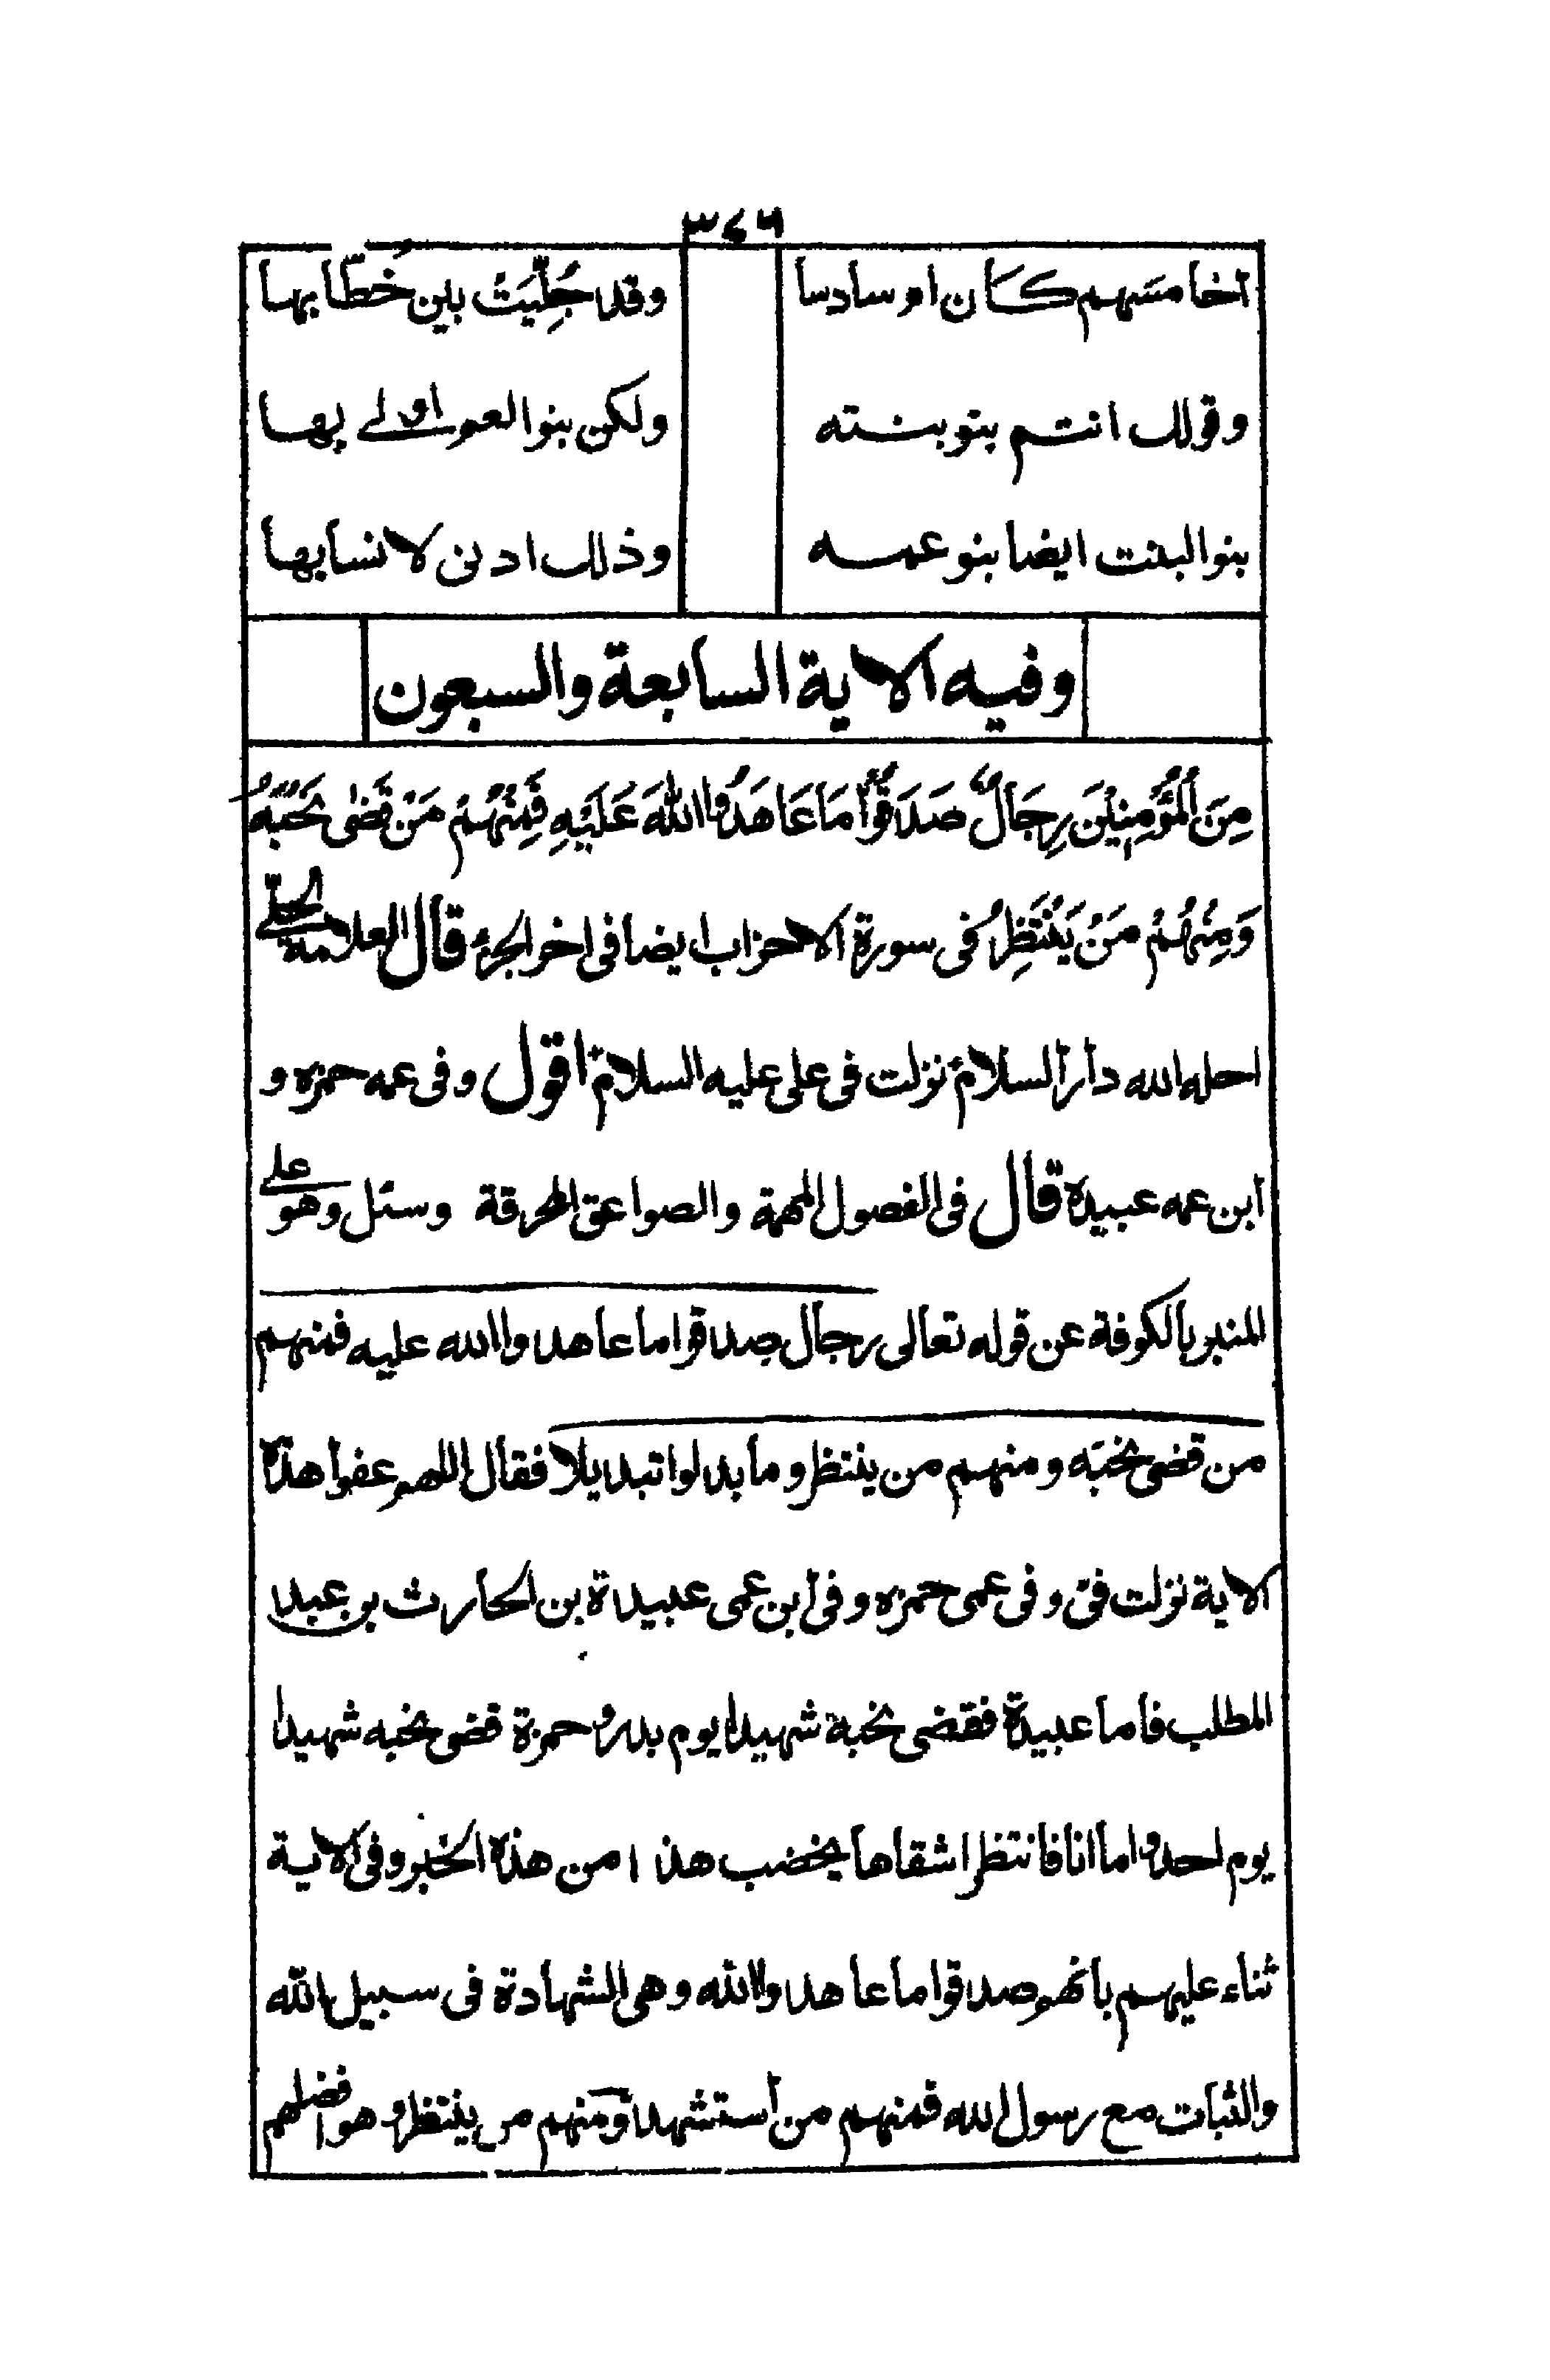 ٣٤٦
أخامسهم كان ام سادسا وقد جُلِّيَتْ بين خُطّابها
وقولك انتم بنو بنته ولكن بنو العم اولى بها
بنو البنت ايضا بنو عمه وذلك ادنى لانسابها
وفيه الاية السابعة والسبعون
مِنَ الْمُؤْمِنِيْنَ رِجَالٌ صَدَقُوْا مَا عَاهَدُوا اللهَ عَلَيْهِ فَمِنْهُمْ مَنْ قَضٰى نَحْبَهُ
وَمِنْهُمْ مَنْ يَنْتَظِرُ فى سورة الاحزاب ايضا فى اخر الجزء قال العلامة الحلّى
احله الله دار السلام نزلت فى على عليه السلام اقول وفى عمه حمزه و
ابن عمه عبيده قال فى الفصول المهمة والصواعق المحرقة وسئل وهو على
المنبر بالكوفة عن قوله تعالى رجال صدقوا ما عاهدوا الله عليه فمنهم
من قضى نحبه ومنهم من ينتظر وما بدلوا تبديلا فقال اللهم عفوا هذه
الاية نزلت فىّ وفى عمى حمزه وفى ابن عمى عبيدة بن الحارث بن عبد
المطلب فاما عبيدة فقضى نحبه شهيدا يوم بدر وحمزة قضى نحبه شهيدا
يوم احد واما انا فانتظر اشقاها يخضب هذا من هذه الخبر وفى الاية
ثناء عليهم بانهم صدقوا ما عاهدوا الله وهى الشهادة فى سبيل الله
والثبات مع رسول الله فمنهم من استشهد ومنهم من ينتظر وهو افضلهم